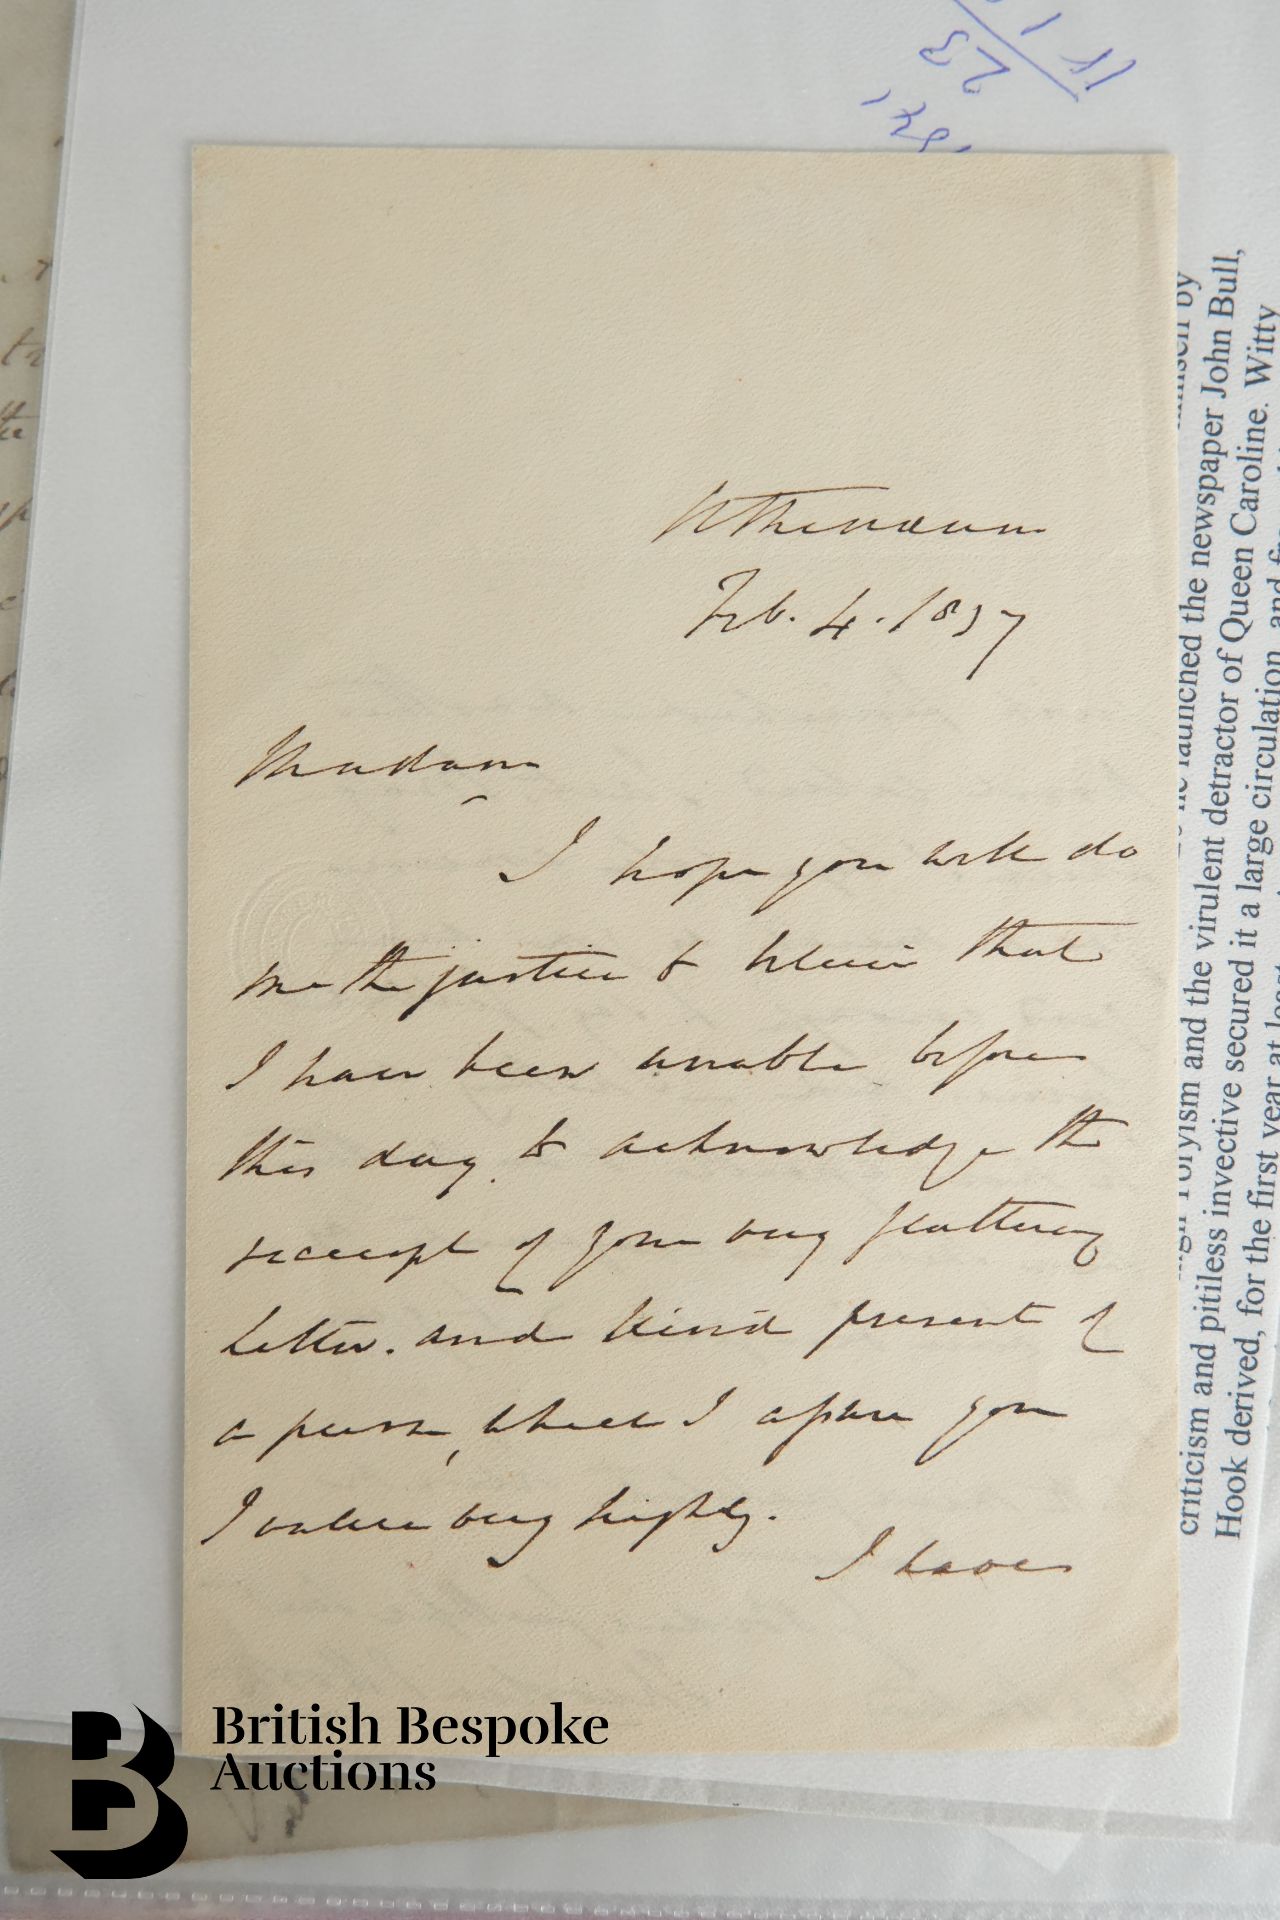 Athenaeum
Feb. 4. 1837
Madam
I hope you will do
me the justice to believe that
I have been unable before
this day to acknowledge the
receipt of your very flattering
letter. and kind present of
a purse, which I assure you
I value very highly.
I have
himself by
he launched the newspaper John Bull,
high Toryism and the virulent detractor of Queen Caroline. Witty
criticism and pitiless invective secured it a large circulation, and
Hook derived, for the first year at least
23
British Bespoke
Auctions